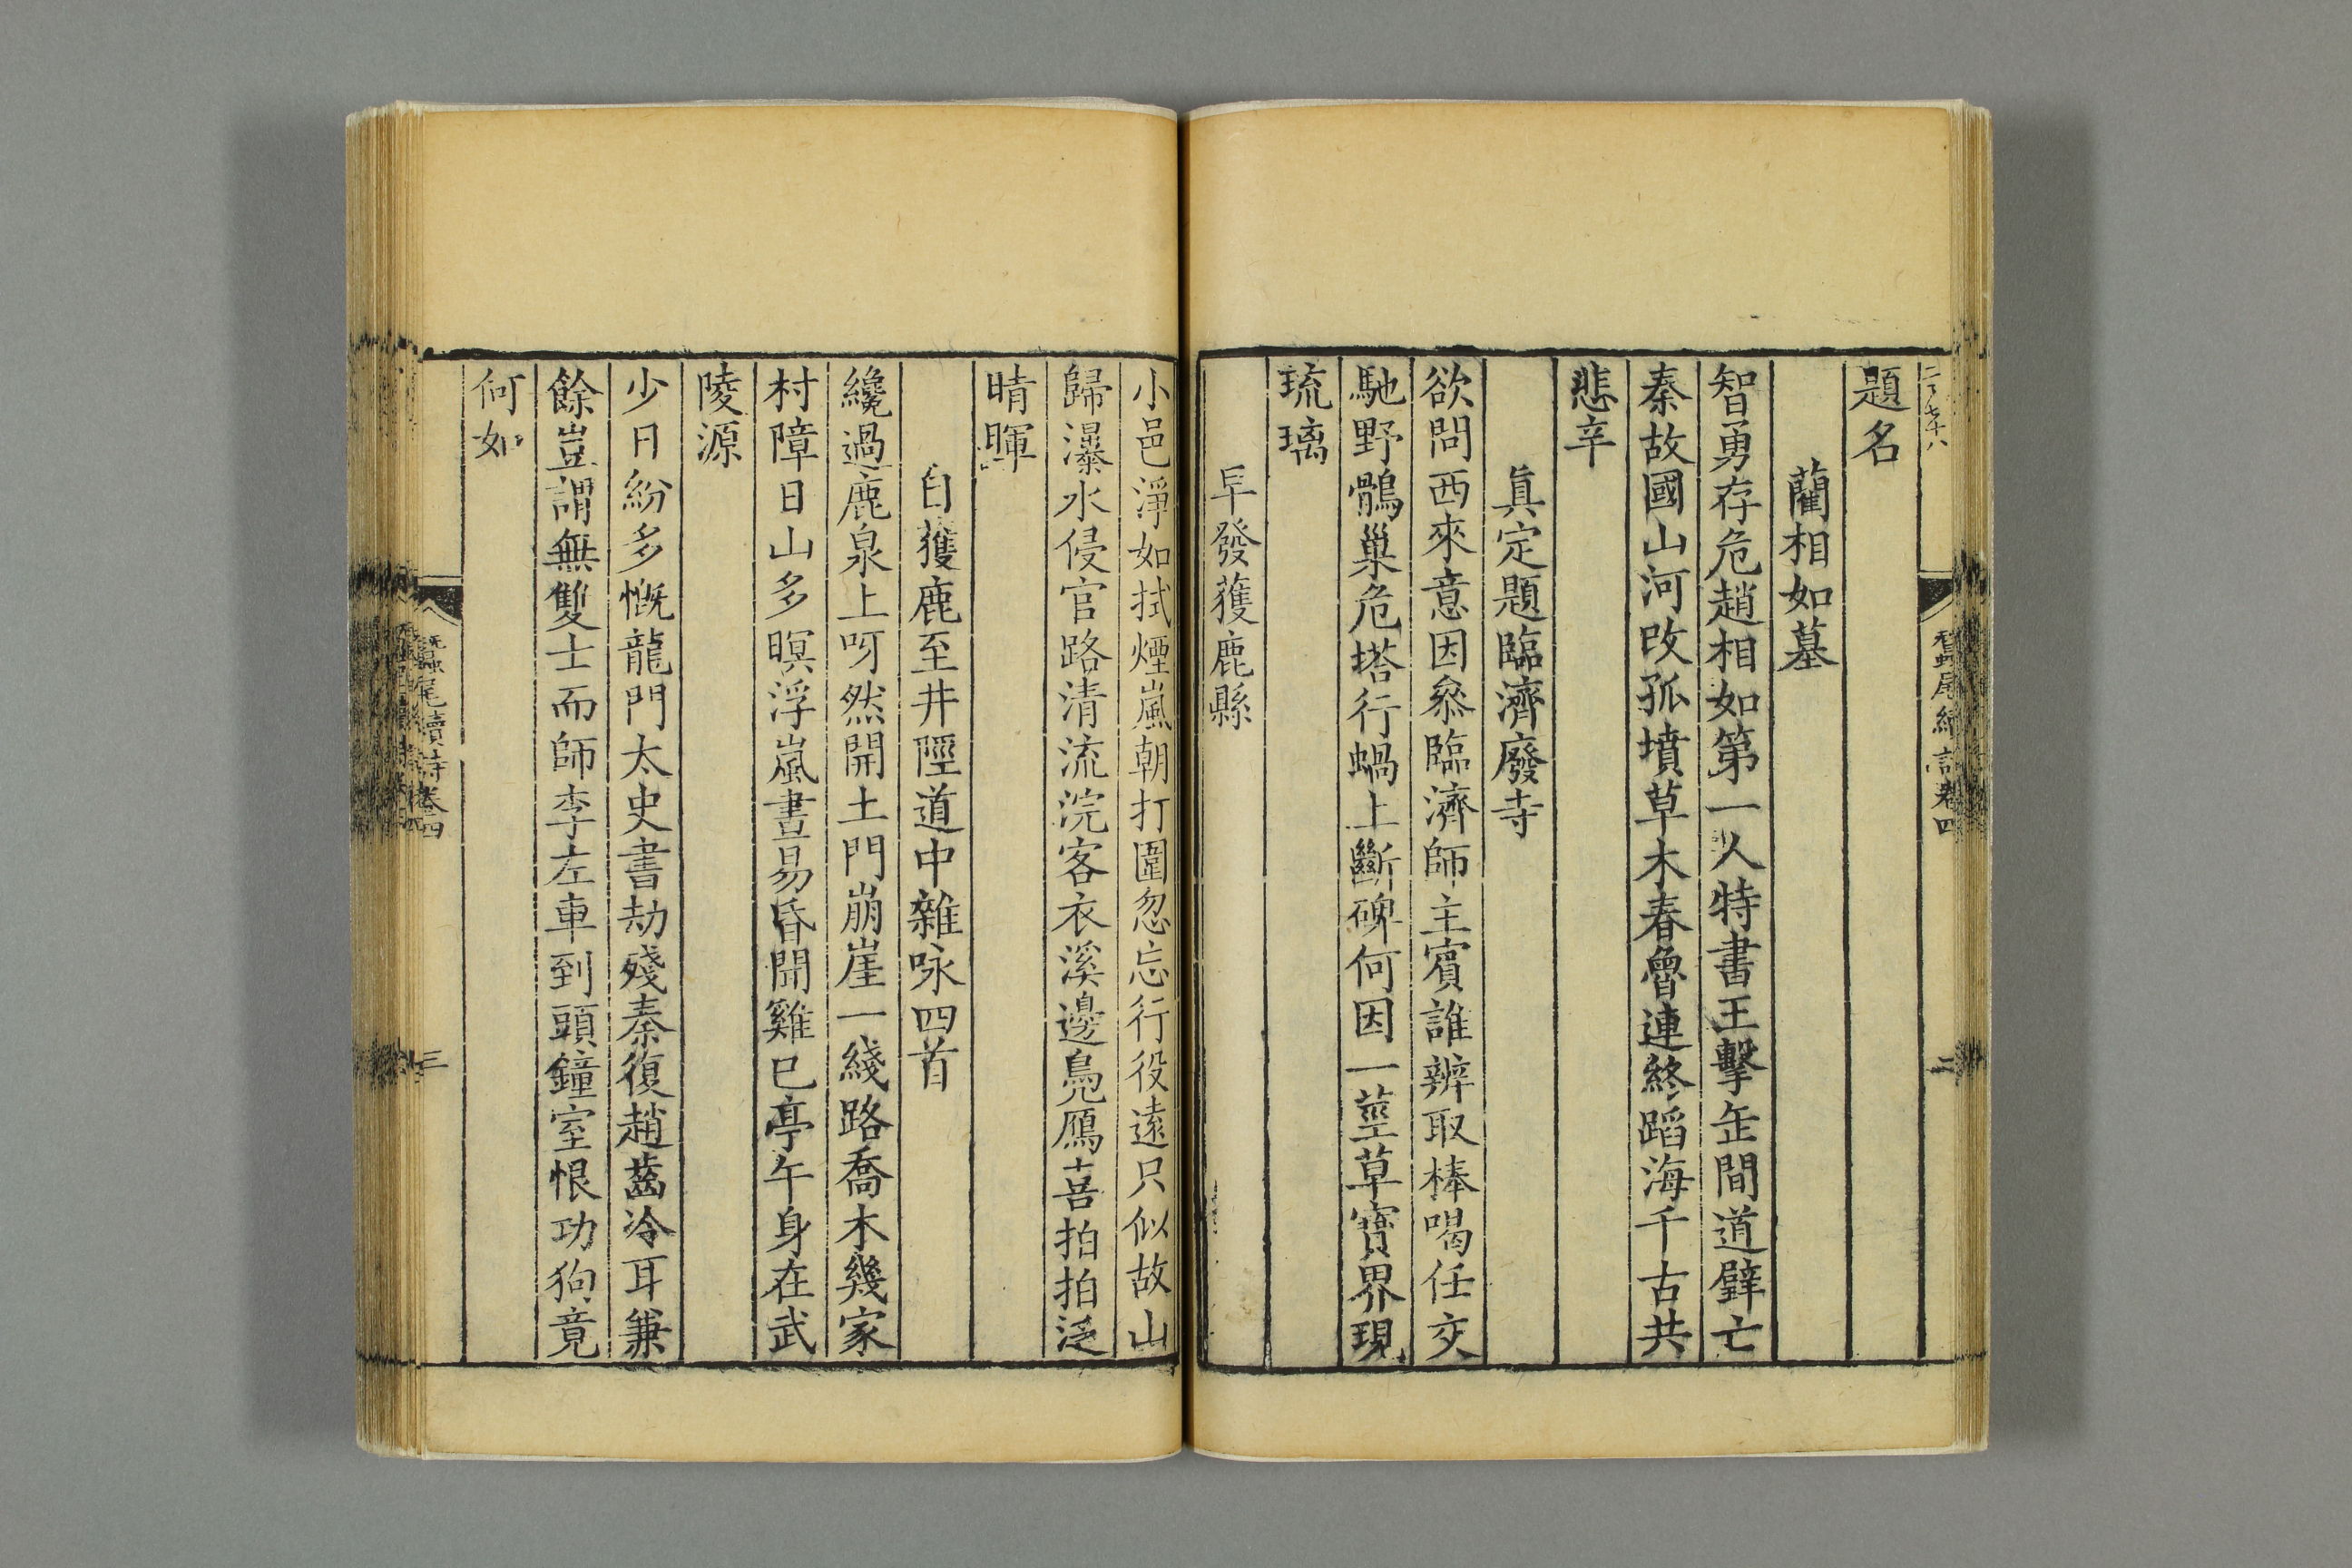 題名
藺相如墓
智勇存危趙相如第一人特書王擊缶間道璧亡
秦故國山河改孤墳草木春魯連終蹈海千古共
悲辛
眞定題臨濟廢寺
欲問西來意因叅臨濟師主賓誰辨取棒喝任交
馳野鶻巢危塔行蝸上斷碑何因一莖草寶界現
琉璃
早發獲鹿縣
小邑淨如拭煙嵐朝打圍忽忘行役遠只似故山
歸瀑水侵官路清流浣客衣溪邊鳬鴈喜拍拍泛
晴暉
自獲鹿至井陘道中雜咏四首
纔過鹿泉上呀然開土門崩崖一綫路喬木幾家
村障日山多暝浮嵐晝易昏聞雞巳亭午身在武
陵源
少日紛多慨龍門太史書劫殘秦復趙齒冷耳兼
餘豈謂無雙士而師李左車到頭鐘室恨功狗竟
何如
蠶尾續詩卷四
三